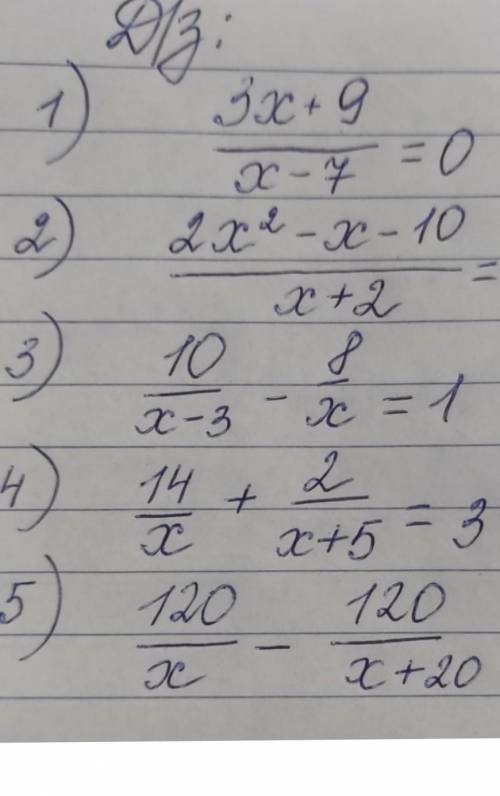 Д/з:
1) (3x + 9)/(x - 7) = 0
2) (2x² - x - 10)/(x + 2) =
3) 10/(x - 3) - 8/x = 1
4) 14/x + 2/(x + 5) = 3
5) 120/x - 120/(x + 20)